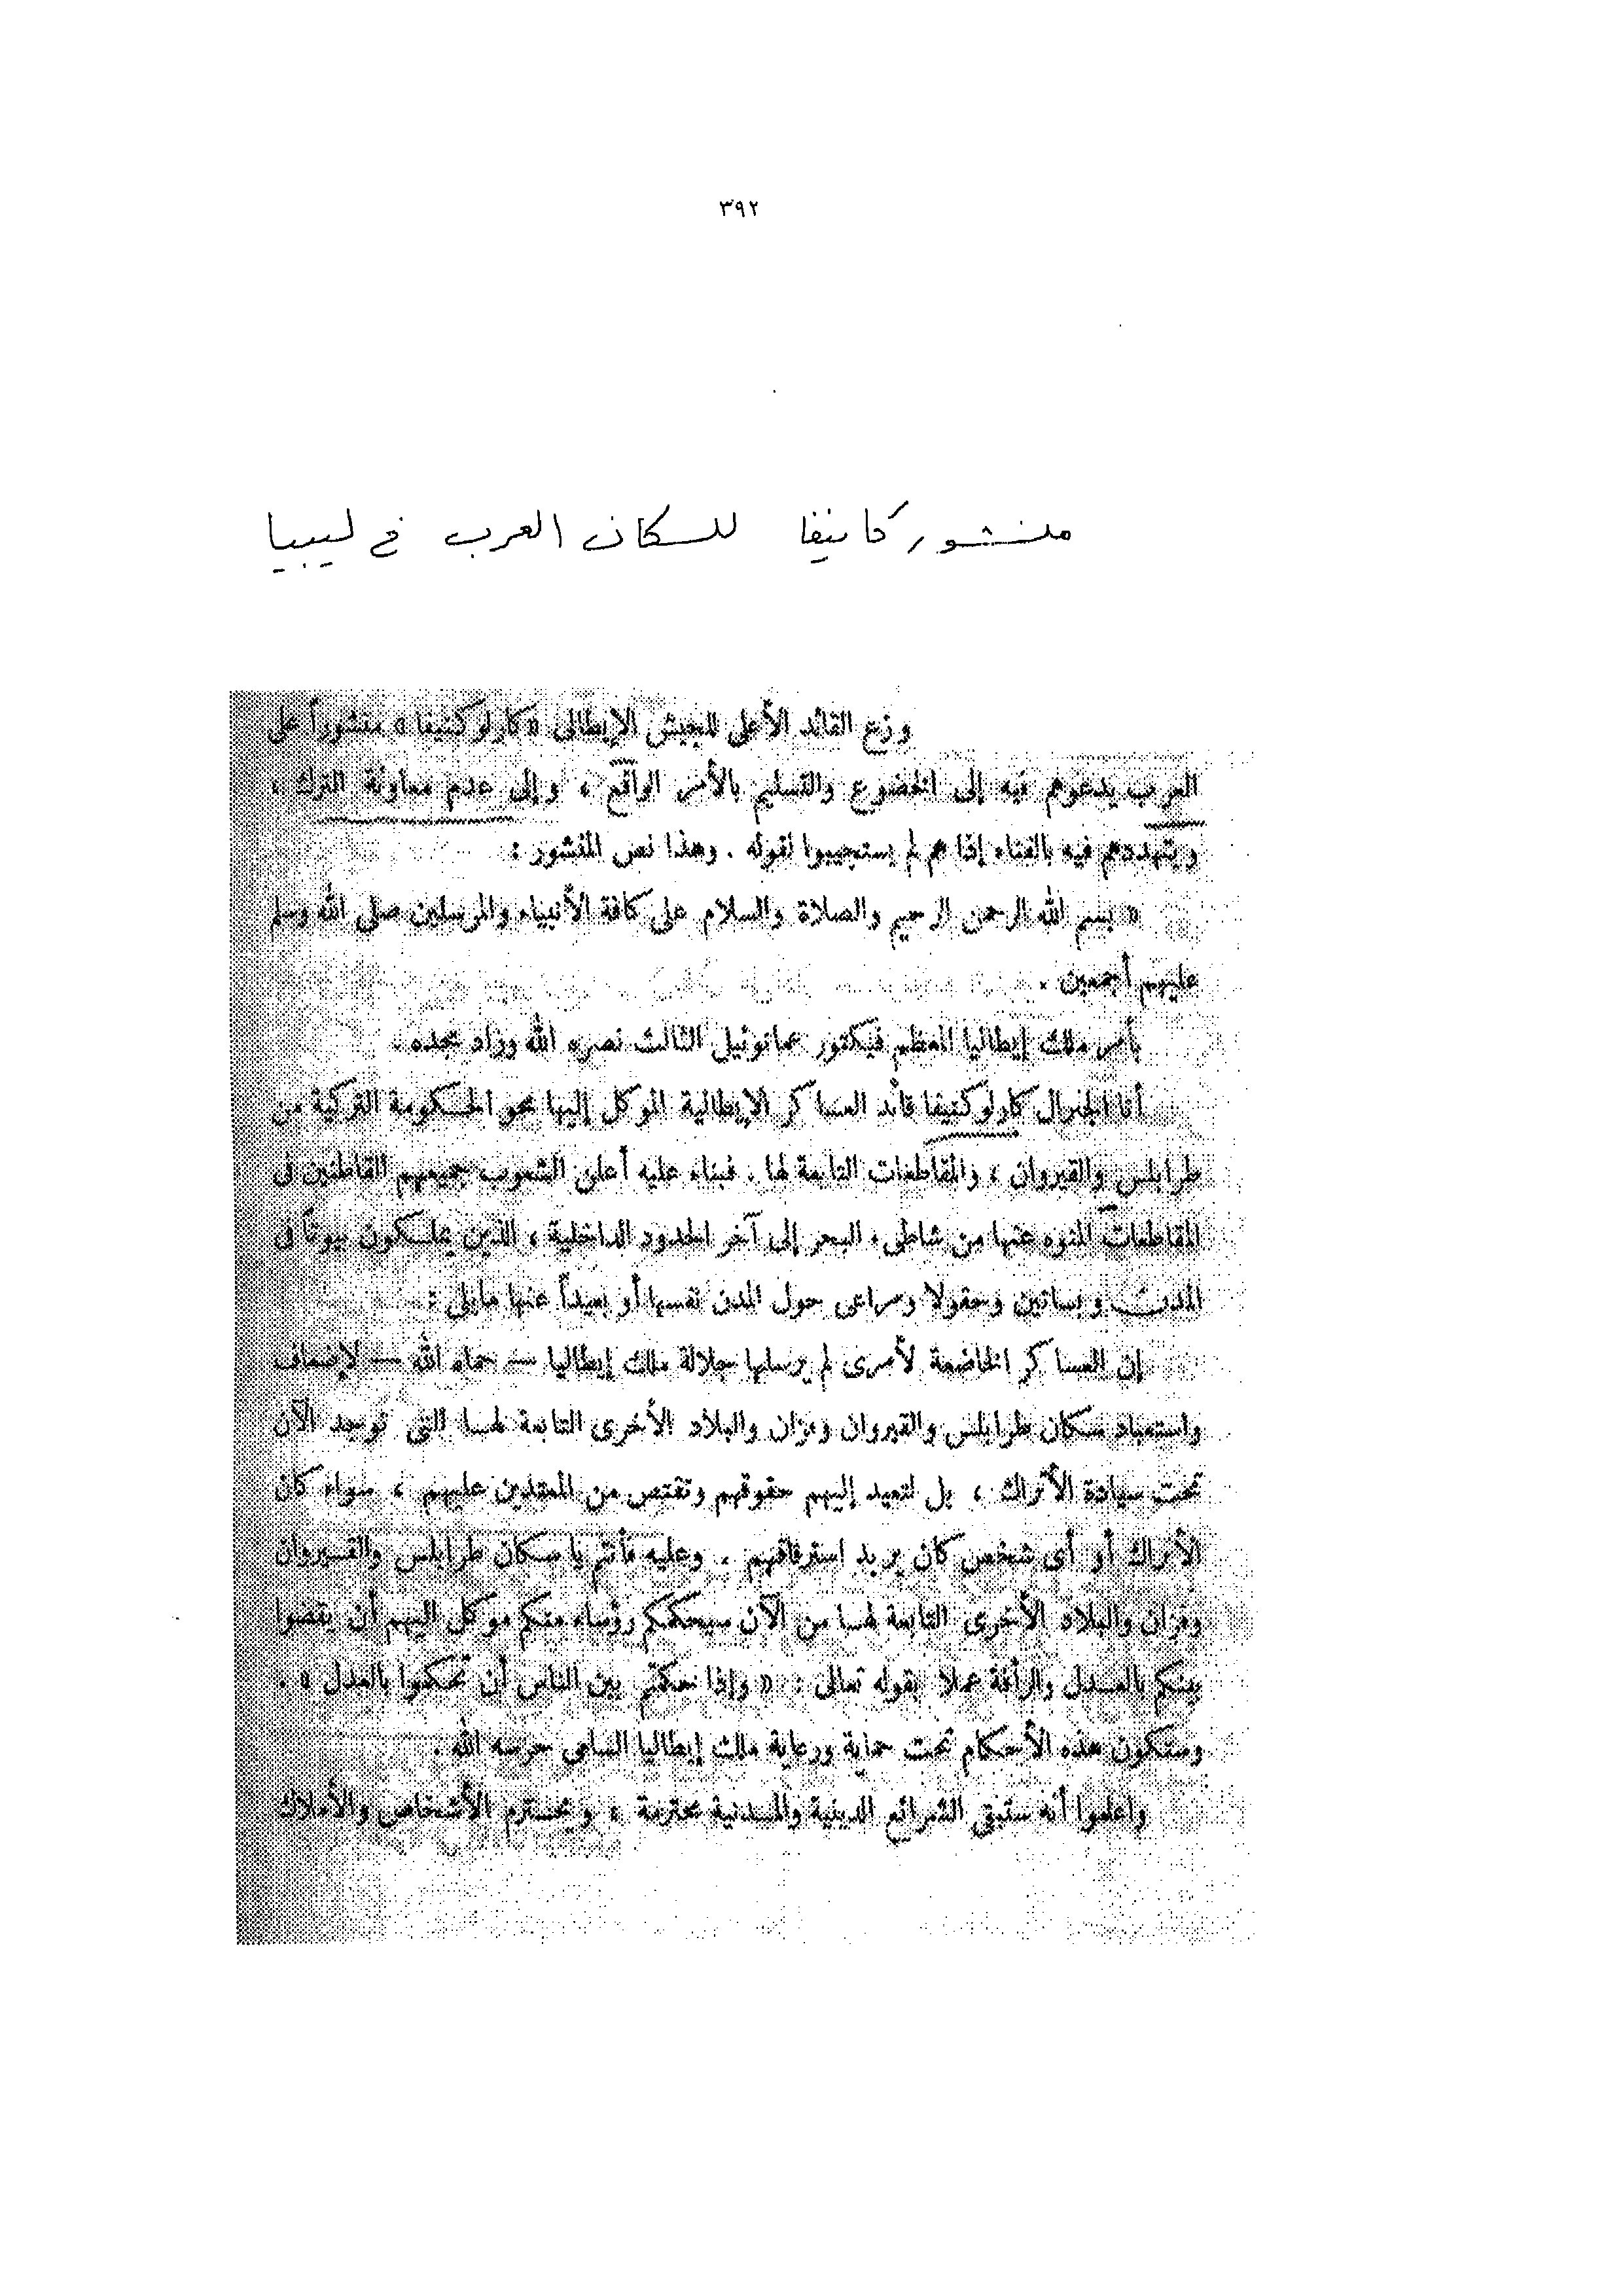 ٣٩٢
منشور كانيفا للسكان العرب في ليبيا
وزع القائد الأعلى للجيش الإيطالى « كارلو كنيفا » منشوراً على
العرب يدعوهم فيه إلى الخضوع والتسليم بالأمر الواقع ، وإلى عدم معاونة الترك ،
ويتهددهم فيه بالفناء إذا هم لم يستجيبوا لقوله . وهذا نص المنشور :
« بسم الله الرحمن الرحيم والصلاة والسلام على كافة الأنبياء والمرسلين صلى الله وسلم
عليهم أجمعين .
بأمر ملك إيطاليا المعظم فيكتور عمانوئيل الثالث نصره الله وزاد مجده .
أنا الجنرال كارلو كنيفا قائد العساكر الإيطالية الموكل إليها محو الحكومة التركية من
طرابلس والقيروان ، والمقاطعات التابعة لها . فبناء عليه أعلن الشعوب جميعهم القاطنين فى
المقاطعات المنوه عنها من شاطىء البحر إلى آخر الحدود الداخلية ، الذين يملكون بيوتاً فى
المدن وبساتين وحقولا ومراعى حول المدن نفسها أو بعيداً عنها مايلى :
إن العساكر الخاضعة لأمرى لم يرسلها جلالة ملك إيطاليا — حماه الله — لإضعاف
واستعباد سكان طرابلس والقيروان وفزان والبلاد الأخرى التابعة لهما التى توجد الآن
تحت سيادة الأتراك ، بل لتعيد إليهم حقوقهم وتقتص من المعتدين عليهم ، سواء كان
الأتراك أو أى شخص كان يريد استرقاقهم . وعليه فأنتم يا سكان طرابلس والقيروان
وفزان والبلاد الأخرى التابعة لهما من الآن سيحكمكم رؤساء منكم موكل اليهم أن يقضوا
بينكم بالعدل والرأفة عملا بقوله تعالى : « وإذا حكمتم بين الناس أن تحكموا بالعدل » .
وستكون هذه الأحكام تحت حماية ورعاية ملك إيطاليا السامى حرسه الله .
واعلموا أنه ستبقى الشرائع الدينية والمدنية محترمة ، ويحترم الأشخاص والأملاك